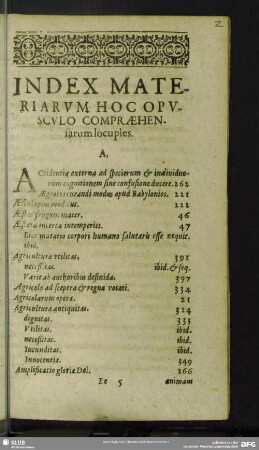 2
INDEX MATE-
RIARVM HOC OPV-
SCVLO COMPRÆHEN-
sarum locuples.
A.
ACcidentia externa ad specierum & indiuiduo-
rum cognitionem sine confusione ducere. 262
Ægrotos curandi modus apud Babylonios. 221
Æsculapius 222
Æstas frugum mater. 46
Æstatis incerta intemperies. 47
Eius mutatio corpori humano salutaris esse nequit.
ibid.
Agricultura vtilitas. 391
necessitas. ibid. & seq.
Variè ab authoribus definita. 397
Agricolæ ad sceptra & regna vocati. 334
Agricolarum opera. 21
Agriculturæ antiquitas. 324
dignitas. 333
Vtilitas. ibid.
necessitas. ibid.
Iucunditas. ibid.
Innocentia. 349
Amplificatio gloriæ Dei. 266
Ee 5 animam
SLUB
DFG